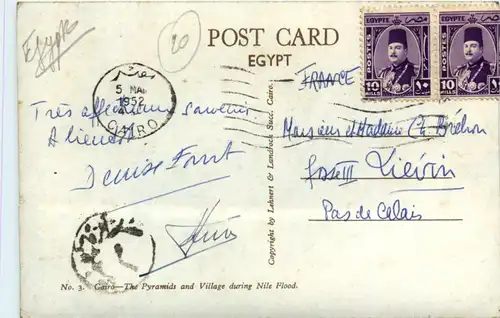 Egypte
20
POST CARD
EGYPT
EGYPTE مصر
POSTES
10 ١٠
EGYPTE مصر
POSTES
10
مصر
5 MA
1952
CAIRO
FRANCE
Très affectueux souvenir
A bientôt
Denise
Monsieur et Madame Ch. Bréhon
fosse III Liévin
Pas de Calais
Copyright by Lehnert & Landrock Succ. Cairo.
No. 3. Cairo—The Pyramids and Village during Nile Flood.